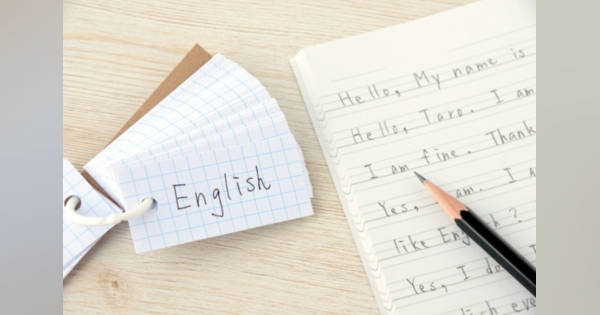 English
Hello, My name is
Hello, Taro. I am
I am fine. Thank
Yes, am. I a
like Engl ?
Yes, I do